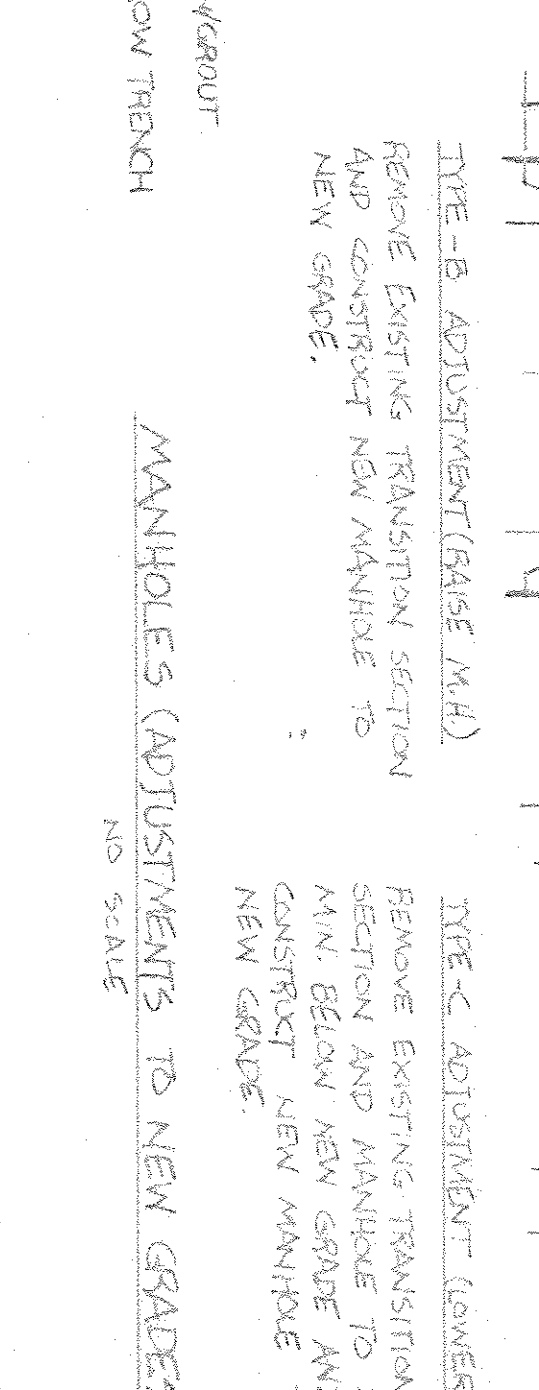 GROUT
OW TRENCH
TYPE-B ADJUSTMENT (RAISE M.H.)
REMOVE EXISTING TRANSITION SECTION
AND CONSTRUCT NEW MANHOLE TO
NEW GRADE.
TYPE-C ADJUSTMENT (LOWER
REMOVE EXISTING TRANSITION
SECTION AND MANHOLE TO
MIN. BELOW NEW GRADE AN
CONSTRUCT NEW MANHOLE
NEW GRADE.
MANHOLES (ADJUSTMENTS TO NEW GRADE
NO SCALE